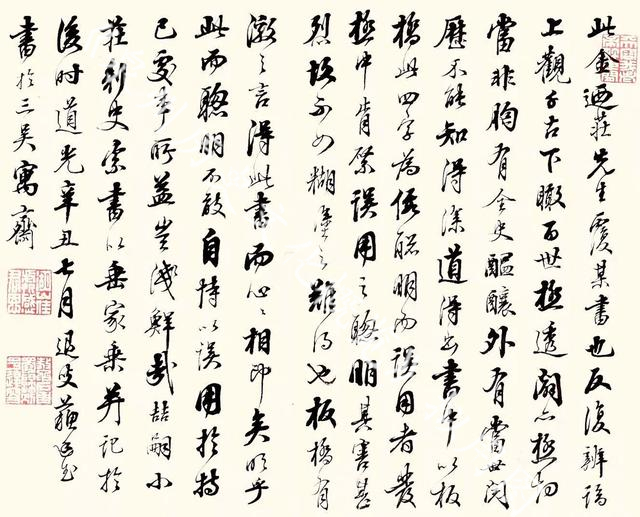 此金迺莊先生覆某書也反復辨論
上觀千古下瞰百世極透闢亦極切
當非胸有全史醞釀外有當世閱
歷不能知得深道得出書中以板
橋此四字為恃聰明而誤用者發
極中肯綮誤用之聰明其害甚
烈故不如糊塗之難得也板橋有
激之言得此書而心心相印矣明乎
此而聰明不敢自恃以誤用於持
己處事所益豈淺鮮哉喆嗣小
莊刺史索書以垂家乘并記於
後時道光辛丑七月退叟蘇廷玉
書於三吳寓齋